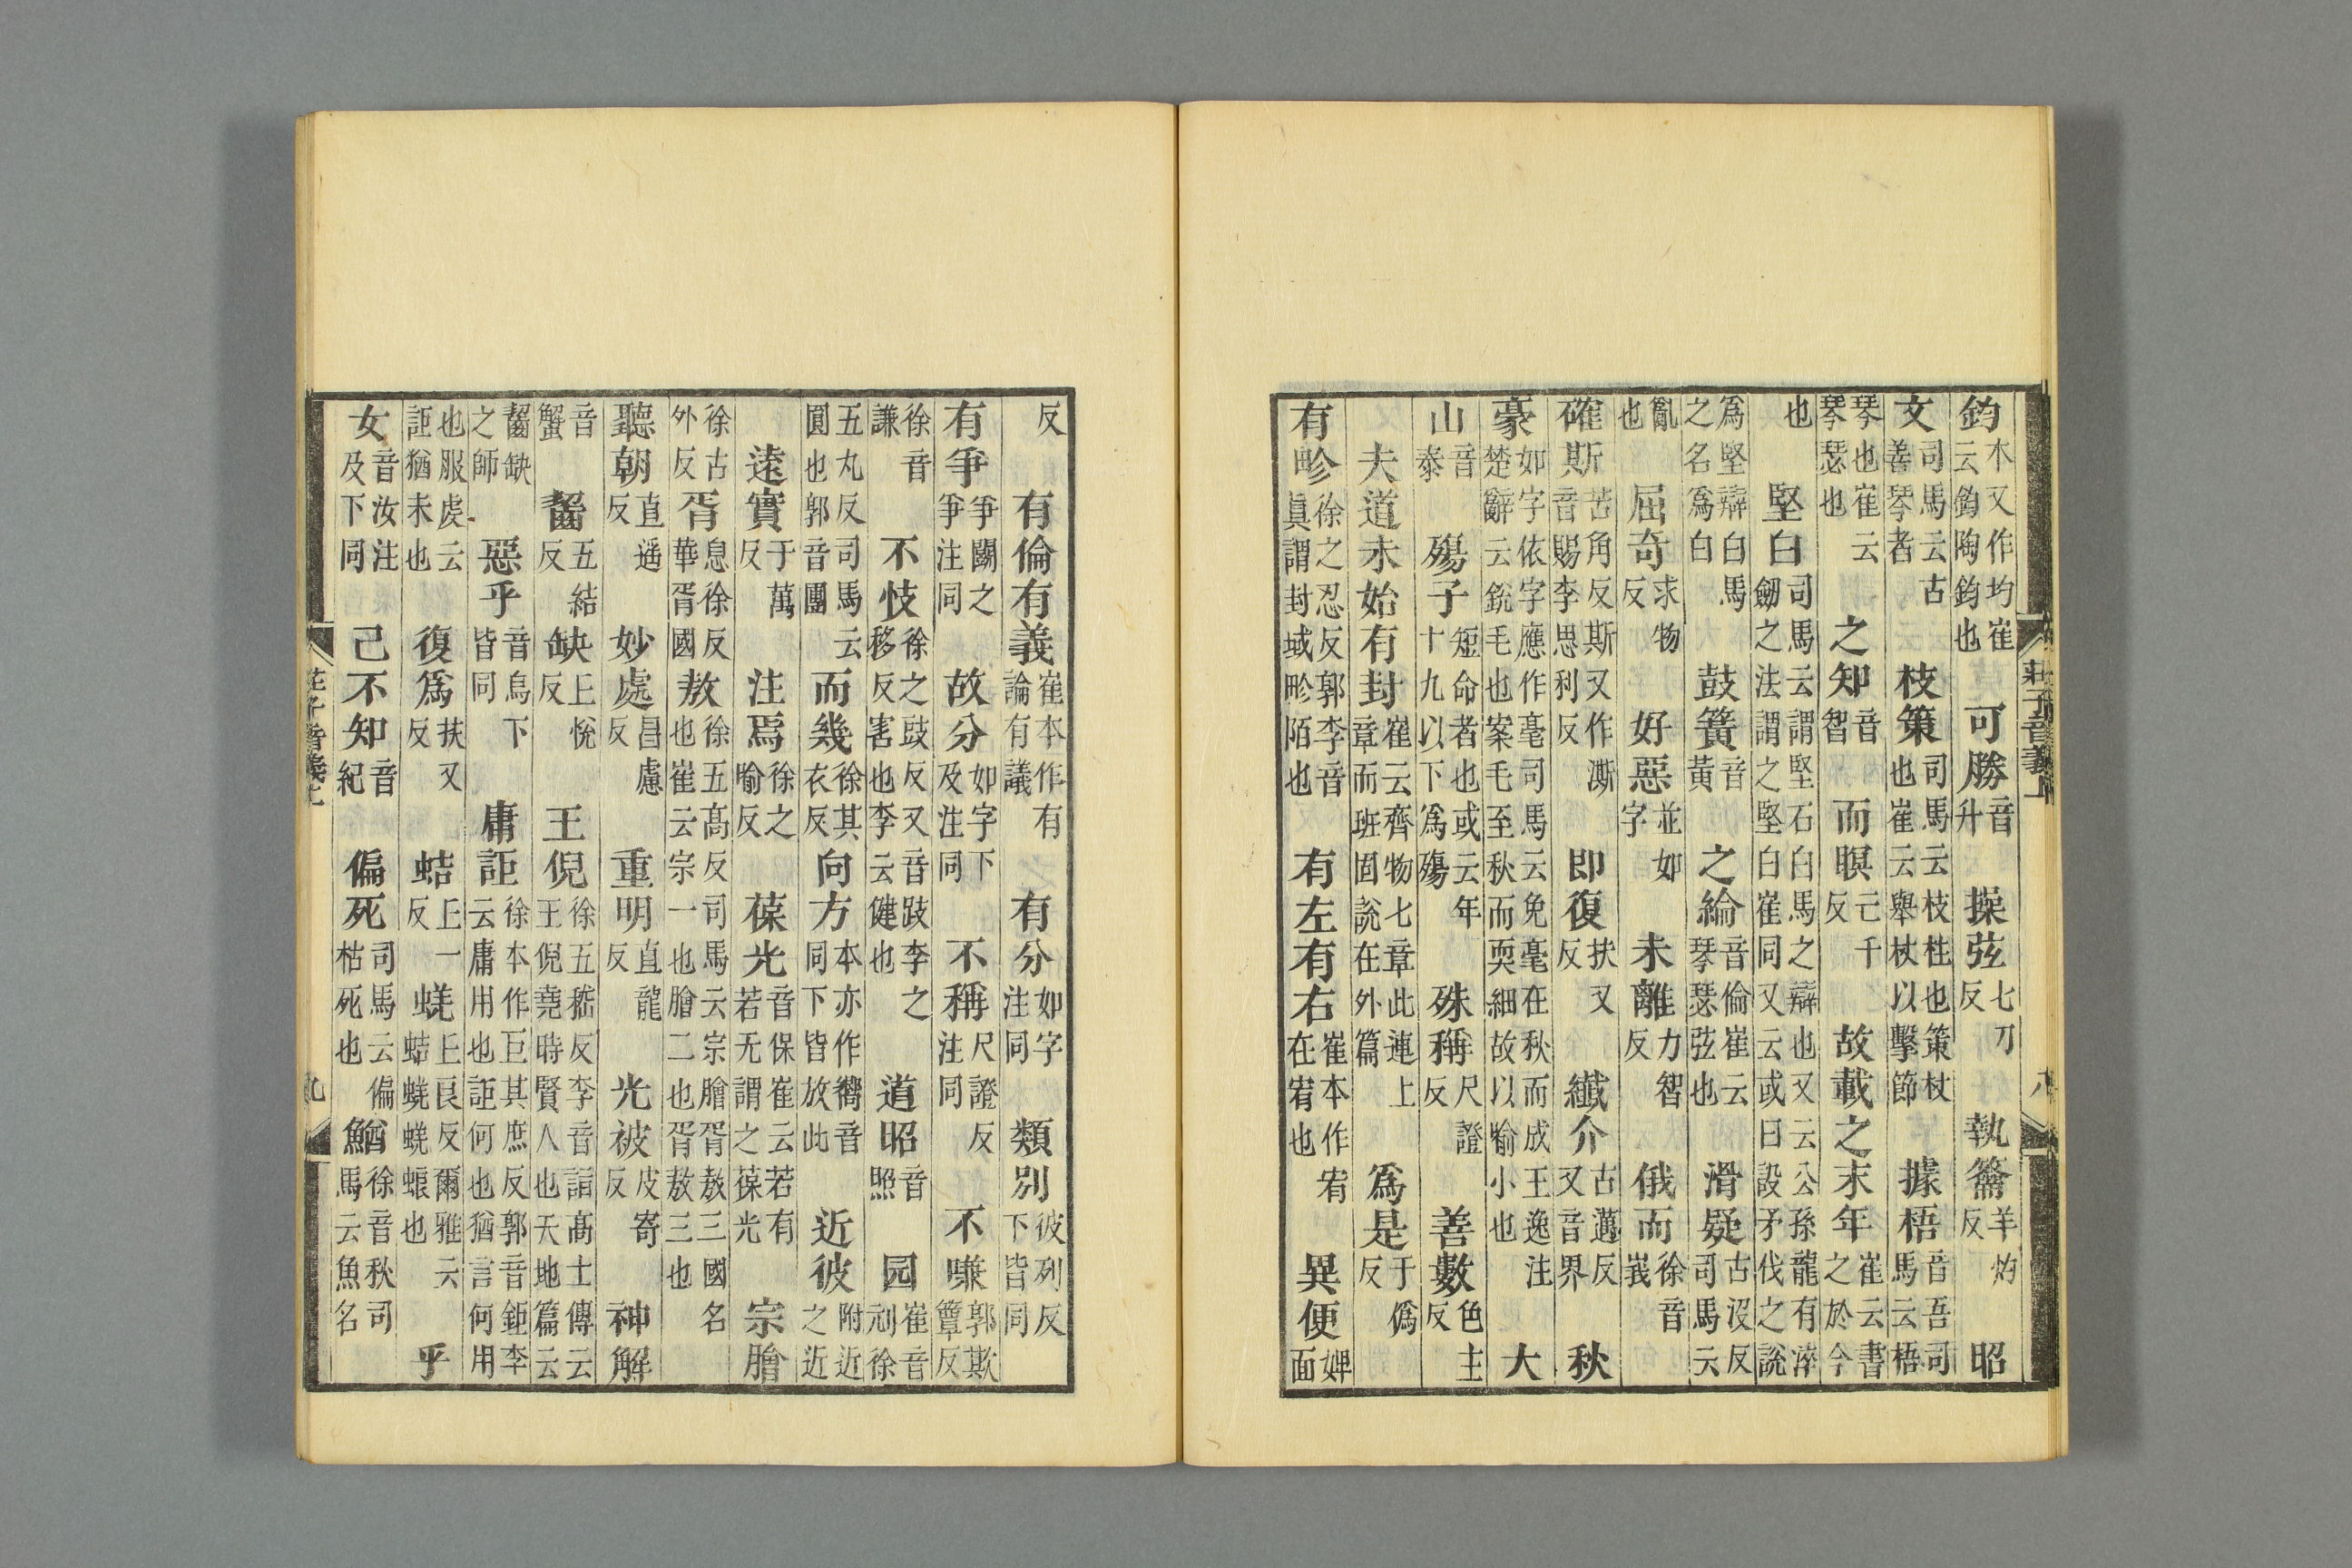 鈞木又作均崔云鈞陶鈞也　可勝音升　操弦七刀反　執籥羊灼反　昭
文司馬云古善琴者　枝策司馬云枝柱也策杖也崔云舉杖以擊節　據梧音吾司馬云梧
琴也崔云琴瑟也　之知音智　而瞑亡千反　故載之末年崔云書之於今
也　堅白司馬云謂堅石白馬之辯也又云公孫龍有淬劒之法謂之堅白崔同又云或曰設矛伐之說
爲堅辯白馬之名爲白　鼓簧音黃　之綸音倫崔云琴瑟弦也　滑疑古沒反司馬云
亂也　屈奇求物反　好惡並如字　未離力智反　俄而徐音峩
確斯苦角反斯又作澌音賜李思利反　即復扶又反　纖介古邁反又音界　秋
豪如字依字應作毫司馬云兔毫在秋而成王逸注楚辭云銳毛也案毛至秋而耎細故以喻小也　大
山音泰　殤子短命者也或云年十九以下爲殤　殊稱尺證反　善數色主反
夫道未始有封崔云齊物七章此連上章而班固說在外篇　爲是于僞反
有畛徐之忍反郭李音眞謂封域畛陌也　有左有右崔本作宥在宥也　異便婢面
反　有倫有義崔本作有論有議　有分如字注同　類別彼列反下皆同
有爭爭鬬之爭注同　故分如字下及注同　不稱尺證反注同　不嗛郭欺簟反
徐音謙　不忮徐之豉反又音跂李之移反害也李云健也　道昭音照　园崔音刓徐
五丸反司馬云圓也郭音團　而幾徐其衣反　向方本亦作嚮音同下皆放此　近彼附近之近
遠實于萬反　注焉徐之喻反　葆光音保崔云若有若无謂之葆光　宗膾
徐古外反　胥息徐反華胥國　敖徐五高反司馬云宗膾胥敖三國名也崔云宗一也膾二也胥敖三也
聽朝直遥反　妙處昌慮反　重明直龍反　光被皮寄反　神解
音蟹　齧五結反　缺丘悅反　王倪徐五嵇反李音詣高士傳云王倪堯時賢人也天地篇云
齧缺之師　惡乎音烏下皆同　庸詎徐本作巨其庶反郭音鉅李云庸用也詎何也猶言何用
也服虔云詎猶未也　復爲扶又反　蛣丘一反　蜣丘良反爾雅云蛣蜣蜣蜋也　乎
女音汝注及下同　己不知音紀　偏死司馬云偏枯死也　鰌徐音秋司馬云魚名
莊子音義上　八
莊子音義上　九